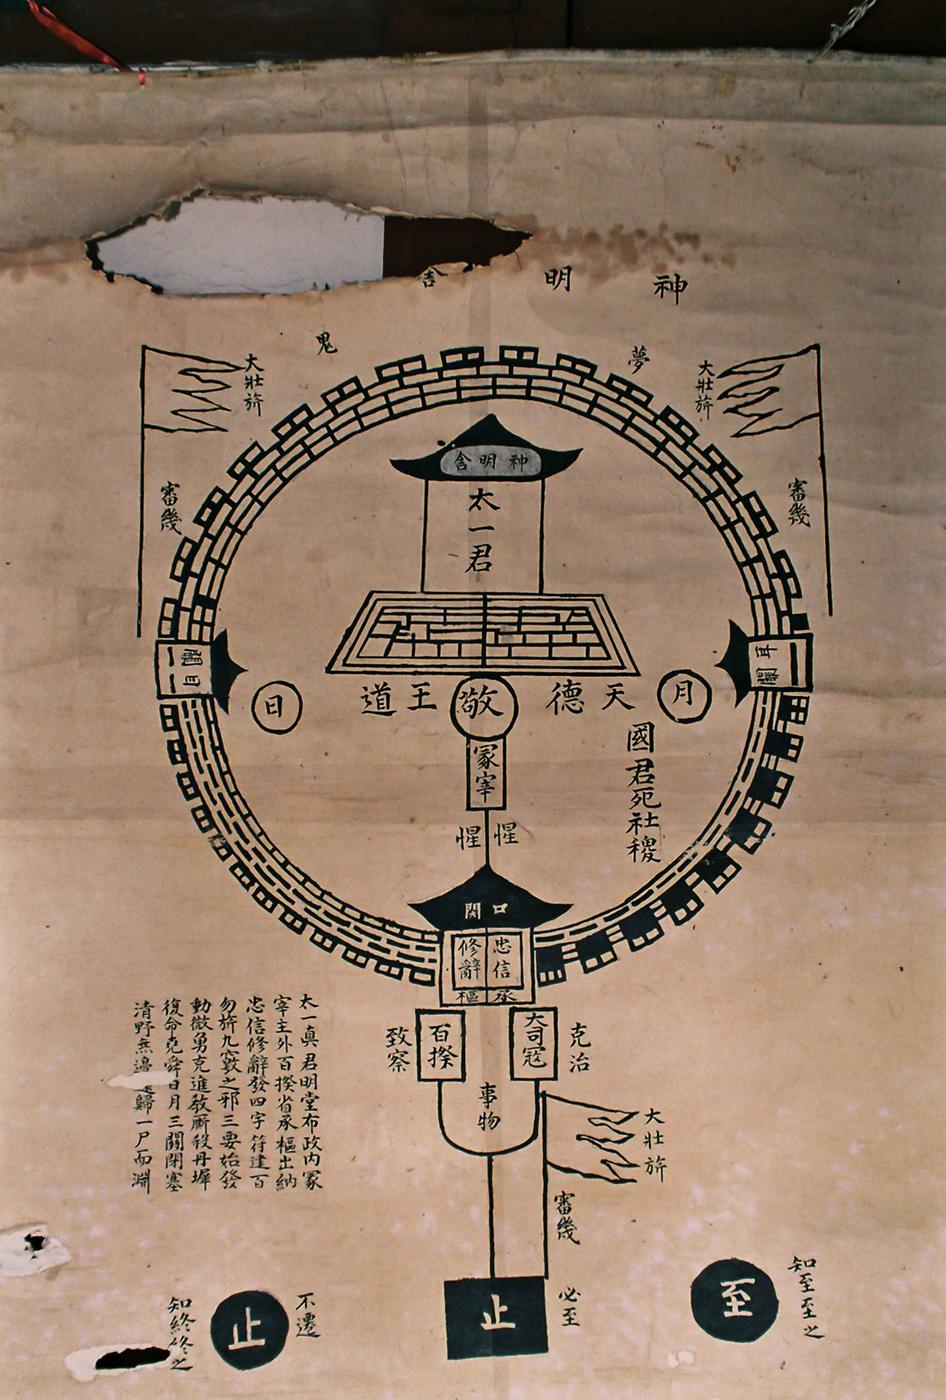 神明舍
夢
鬼
大壯旂
審幾
大壯旂
審幾
神明舍
太一君
耳關
目關
月
天德
敬
王道
日
冢宰
國君死社稷
惺惺
口關
忠信
修辭
承樞
大司寇
克治
百揆
致察
事物
大壯旂
審幾
太一真君明堂布政內冢
宰主外百揆省承樞出納
忠信修辭發四字符建百
勿旂九竅之邪三要始發
動微勇克進教厮殺丹墀
復命堯舜日月三關閉塞
清野無邊歸一尸而淵
知至至之
至
必至
止
不遷
止
知終終之